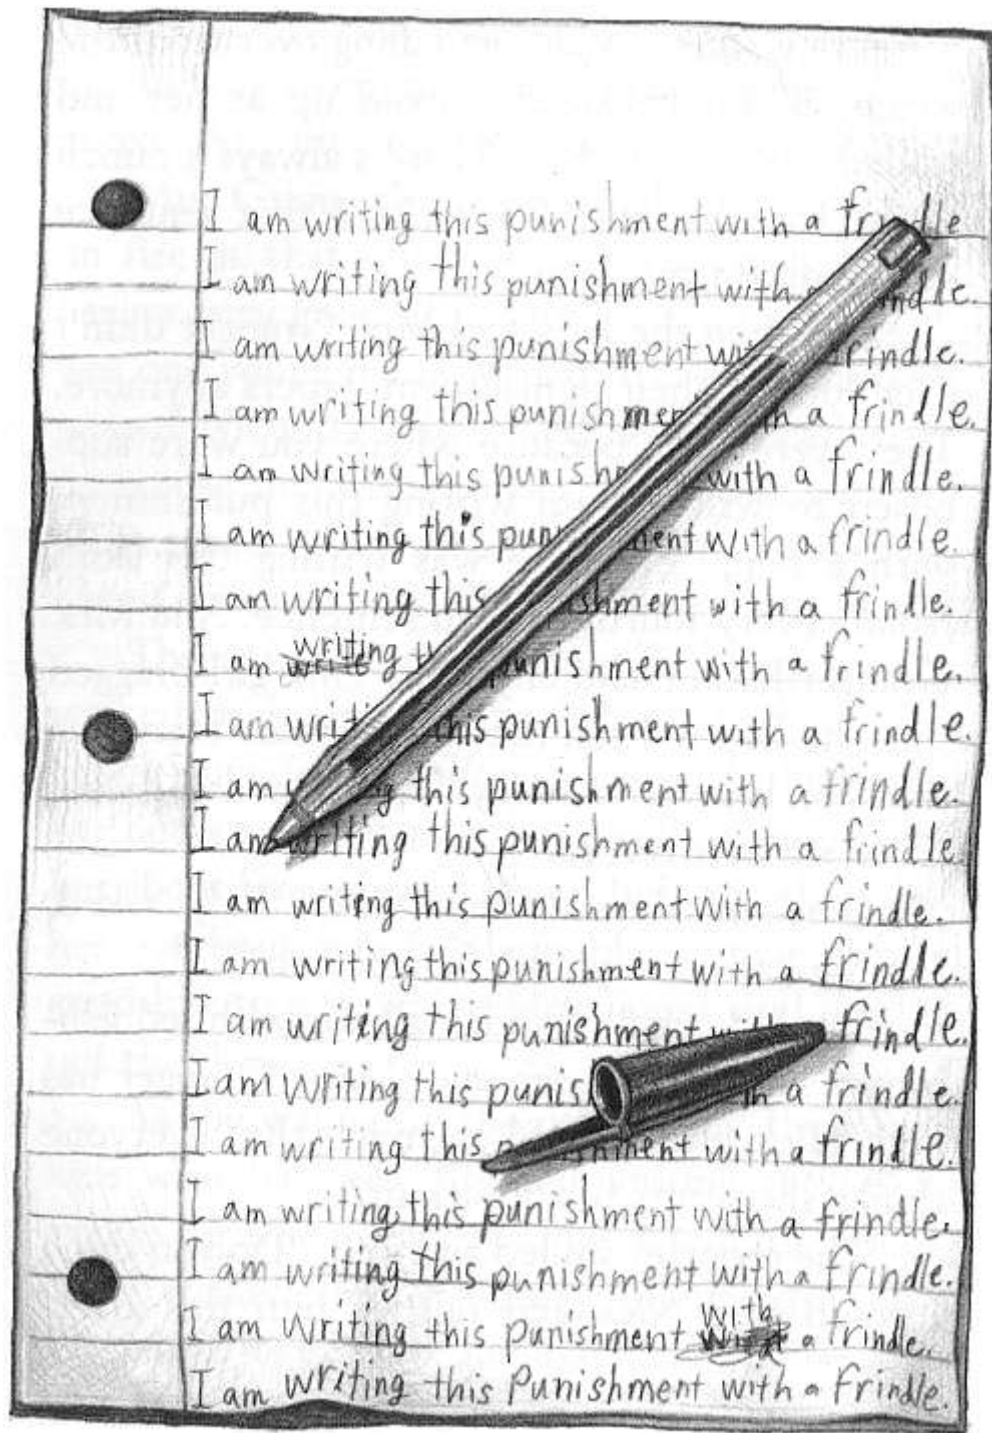 I am writing this punishment with a frindle
I am writing this punishment with a frindle.
I am writing this punishment with a frindle.
I am writing this punishment with a frindle.
I am writing this punishment with a frindle.
I am writing this punishment with a frindle.
I am writing this punishment with a frindle.
I am writing this punishment with a frindle.
I am writing this punishment with a frindle.
I am writing this punishment with a frindle.
I am writing this punishment with a frindle
I am writing this punishment with a frindle.
I am writing this punishment with a frindle.
I am writing this punishment with frindle.
I am writing this punishment with a frindle.
I am writing this punishment with a frindle.
I am writing this punishment with a frindle.
I am writing this punishment with a frindle.
I am writing this punishment with a frindle.
I am writing this Punishment with a frindle.